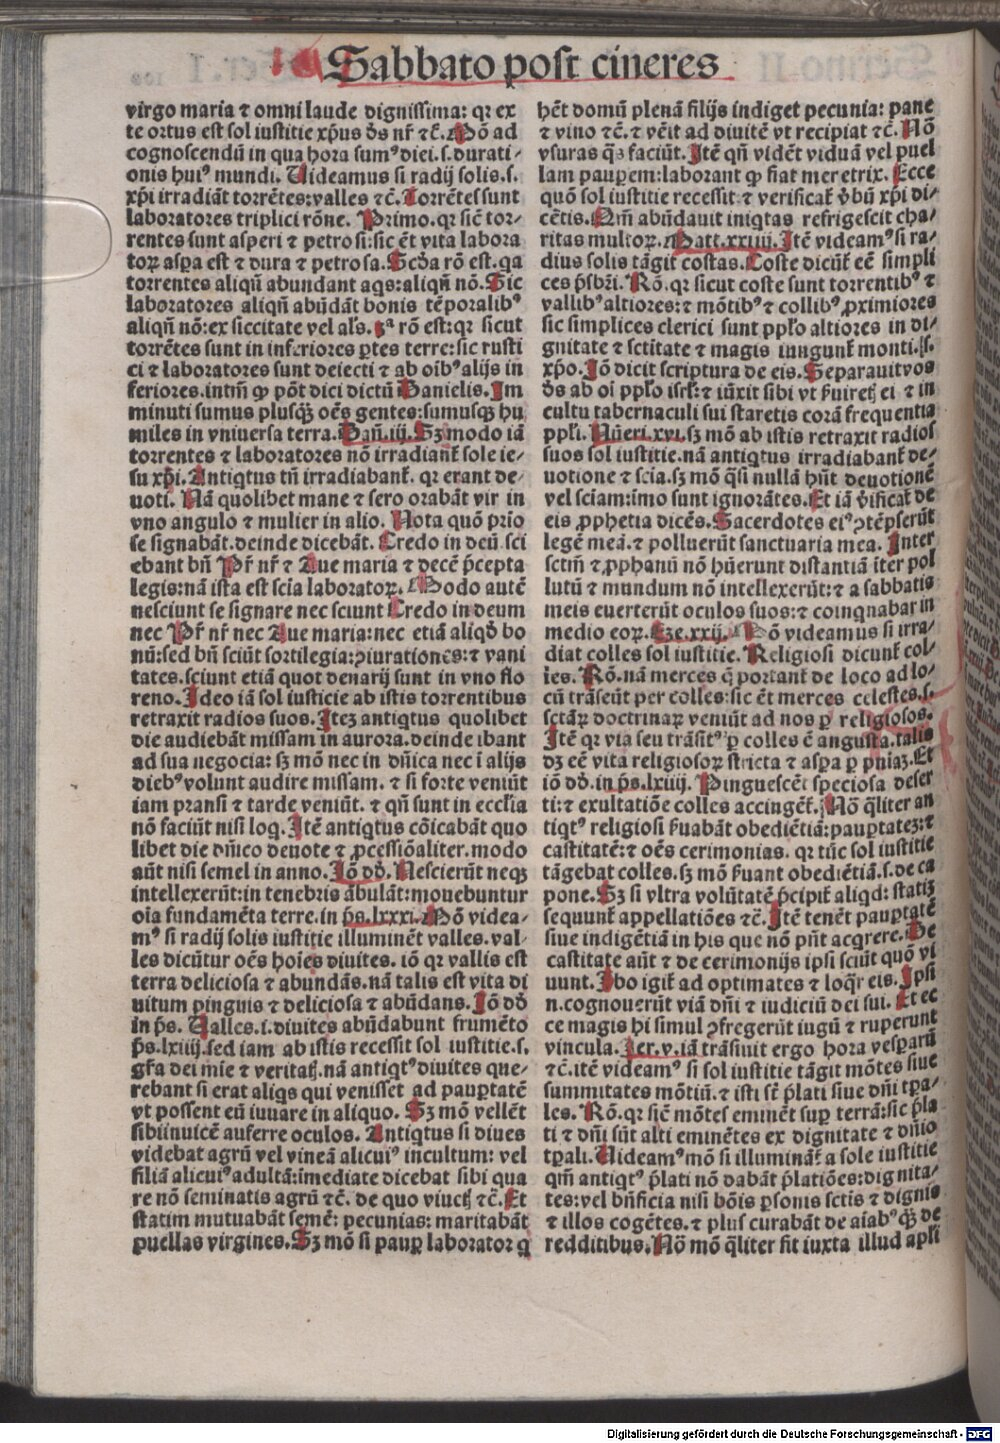 Sabbato post cineres
virgo maria ⁊ omni laude dignissima: qr ex
te ortus est sol iustitie xp̄us dn̄s nr̄ ⁊c̄. Mō ad
cognoscendū in qua hora sumꝰ diei.s.durati-
onis huiꝰ mundi. Uideamus si radij solis.s.
xp̄i irradiāt torrētes:valles ⁊c̄. Torrētes sunt
laboratores triplici rōne. Primo.qr sic̄ tor-
rentes sunt asperi ⁊ petrosi:sic ēt vita labora
toꝝ aspa est ⁊ dura ⁊ petrosa.Scd̄a rō est.qa
torrentes aliqn̄ abundant aqs:aliqn̄ nō. Sic
laboratores aliqn̄ abūdāt bonis tēporalibꝰ
aliqn̄ nō:ex siccitate vel al̄s.3ª rō est:qr sicut
torrētes sunt in inferiores ꝑtes terre:sic rusti
ci ⁊ laboratores sunt deiecti ⁊ ab oībꝰ alijs in
feriores.intm̄ ꝙ pōt dici dictū Danielis. Im
minuti sumus plusqꝫ oēs gentes:sumusqꝫ hu
miles in vniuersa terra.Dan̄.iij. Sꝫ modo iā
torrentes ⁊ laboratores nō irradianꝉ sole ie-
su xp̄i. Antiqtus tn̄ irradiabanꝉ. qr erant de-
uoti. Nā quolibet mane ⁊ sero orabāt vir in
vno angulo ⁊ mulier in alio. Nota quō prīo
se signabāt.deinde dicebāt. Credo in deū.sci
ebant bn̄ Pr̄ nr̄ ⁊ Aue maria ⁊ decē p̄cepta
legis:nā ista est scīa laboratoꝝ. Modo autē
nesciunt se signare nec sciunt Credo in deum
nec Pr̄ nr̄ nec Aue maria:nec etiā aliqd̄ bo
nū:sed bn̄ sciūt sortilegia:ꝯiurationes:⁊ vani
tates.sciunt etiā quot denarij sunt in vno flo
reno.Ideo iā sol iusticie ab istis torrentibus
retraxit radios suos.Iteꝫ antiqtus quolibet
die audiebāt missam in aurora.deinde ibant
ad sua negocia: sꝫ mō nec in dn̄ica nec ī alijs
diebꝰ volunt audire missam. ⁊ si forte veniūt
iam pransi ⁊ tarde veniūt. ⁊ qn̄ sunt in eccl̄ia
nō faciūt nisi loq. Itē antiqtus cōicabāt quo
libet die dn̄ico deuote ⁊ ꝓcessiōaliter.modo
aūt nisi semel in anno. Iō dd̄. Nescierūt neqꝫ
intellexerūt:in tenebris ābulāt:mouebuntur
oīa fundamēta terre.in ps̄.lxxxi. Mō videa-
mꝰ si radij solis iustitie illuminēt valles.val-
les dicūtur oēs hoīes diuites. iō qr vallis est
terra deliciosa ⁊ abundās.nā talis est vita di
uitum pinguis ⁊ deliciosa ⁊ abūdans. Iō dd̄
in ps̄. Ualles.i.diuites abūdabunt frumēto
ps̄.lxiiij.sed iam ab istis recessit sol iustitie.s.
gr̄a dei mīe ⁊ veritatꝭ.nā antiqtꝰ diuites que-
rebant si erat aliqs qui venisset ad paupꝑtatē
vt possent eū iuuare in aliquo. Sꝫ mō vellēt
sibiinuicē auferre oculos. Antiqtus si diues
videbat agrū vel vineā alicuiꝰ incultum: vel
filiā alicuiꝰ adultā:imediate dicebat sibi qua
re nō seminatis agrū ⁊c̄. de quo viuetꝭ ⁊c̄. Et
statim mutuabāt semē: pecunias: maritabāt
puellas virgines.Sꝫ mō si paup laborator q
hēt domū plenā filijs indiget pecunia: pane
⁊ vino ⁊c̄. ⁊ vēit ad diuitē vt recipiat ⁊c̄. Nō
vsuras qs̄ faciūt. Itē qn̄ vidēt viduā vel puel
lam paupem:laborant ꝙ fiat meretrix. Ecce
quō sol iustitie recessit:⁊ verificaꝉ v̄bū xp̄i di-
cētis. Qm̄ abūdauit iniqtas refrigescit cha-
ritas multoꝝ. Matt.xxiiij. Itē videamꝰ si ra-
dius solis tāgit costas. Coste dicūꝉ eē simpli
ces p̄sbr̄i. Rō.qr sicut coste sunt torrentibꝰ ⁊
vallibꝰ altiores:⁊ mōtibꝰ ⁊ collibꝰ ꝓximiores
sic simplices clerici sunt ppl̄o altiores in di-
gnitate ⁊ sc̄titate ⁊ magis iungunꝉ monti.s.
xp̄o. Iō dicit scriptura de eis. Separauit vos
dn̄s ab oī ppl̄o isrl̄:⁊ iūxit sibi vt ꝑuiretꝭ ei ⁊ in
cultu tabernaculi sui staretis corā frequentia
ppl̄i. Nūeri.xvi.sꝫ mō ab istis retraxit radios
suos sol iustitie.nā antiqtus irradiabanꝉ de-
uotione ⁊ scīa.sꝫ mō qsī nullā hn̄t deuotionē
vel sciam:īmo sunt ignorātes. Et iā v̄ificaꝉ de
eis ꝓphetia dicēs.Sacerdotes eiꝰ ꝯtēpserūt
legē meā.⁊ polluerūt sanctuaria mea. Inter
sctm̄ ⁊ ꝓphanū nō hūerunt distantiā īter pol
lutū ⁊ mundum nō intellexerūt:⁊ a sabbatis
meis euerterūt oculos suos:⁊ coinqnabar in
medio eoꝝ. Eze.xxij. Mō videamus si irra-
diat colles sol iustitie. Religiosi dicunꝉ col-
les. Rō.nā merces q̄ portanꝉ de loco ad lo-
cū trāseūt per colles:sic ēt merces celestes.s.
sctāꝝ doctrinaꝝ veniūt ad nos ꝑ religiosos.
Itē qr via seu trāsitꝰ ꝑ colles ē angusta.talis
dꝫ eē vita religiosoꝝ stricta ⁊ aspa ꝑ pn̄iaꝫ. Et
iō dd̄.in ps̄.lxiiij. Pinguescēt speciosa deser
ti:⁊ exultatiōe colles accingēꝉ. Nō q̄liter an
tiqtꝰ religiosi ẜuabāt obediētiā:pauꝑtateꝫ:⁊
castitatē:⁊ oēs cerimonias. qr tūc sol iustitie
tāgebat colles.sꝫ mō ẜuant obediētiā.s.de ca
pone. Sꝫ si vltra volūtatē p̄cipiꝉ aliqd: statiꝫ
sequunꝉ appellatiōes ⁊c̄. Itē tenēt pauꝑtatē
siue indigētiā in his que nō pn̄t acqrere. De
castitate aūt ⁊ de cerimonijs ipsi sciūt quō vi
uunt. Ibo igiꝉ ad optimates ⁊ loqr eis. Ipsi
n.cognouerūt viā dn̄i ⁊ iudiciū dei sui. Et ec
ce magis hi simul ꝯfregerūt iugū ⁊ ruperunt
vincula. Jer.v.iā trāsiuit ergo hora vesparū
⁊c̄.itē videamꝰ si sol iustitie tāgit mōtes siue
summitates mōtiū.⁊ isti st̄ p̄lati siue dn̄i tꝑa-
les. Rō.qr sic̄ mōtes eminēt sup terrā:sic p̄la
ti ⁊ dn̄i sūt alti eminētes ex dignitate ⁊ dn̄io
tꝑali.Uideamꝰ mō si illumināꝉ a sole iustitie
qm̄ antiqtꝰ p̄lati nō dabāt p̄latiōes:dignita-
tes:vel bn̄ficia nisi bōis ꝑsonis sctis ⁊ dignis
⁊ illos cogētes.⁊ plus curabāt de aīabꝰ qꝫ de
redditibus. Nō mō q̄liter fit iuxta illud apl̄i
Digitalisierung gefördert durch die Deutsche Forschungsgemeinschaft - DFG